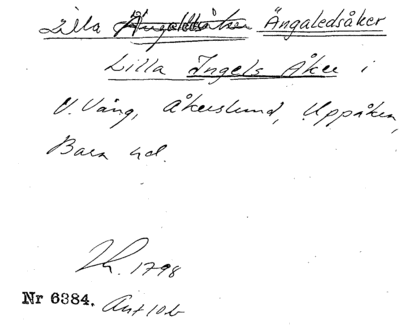 Lilla Ängaledsåker
Lilla Ingels Åker i
V. Vång, Åkerslund, Uppåkra,
Bara hd.
1798
Nr 6384. Ant 10b